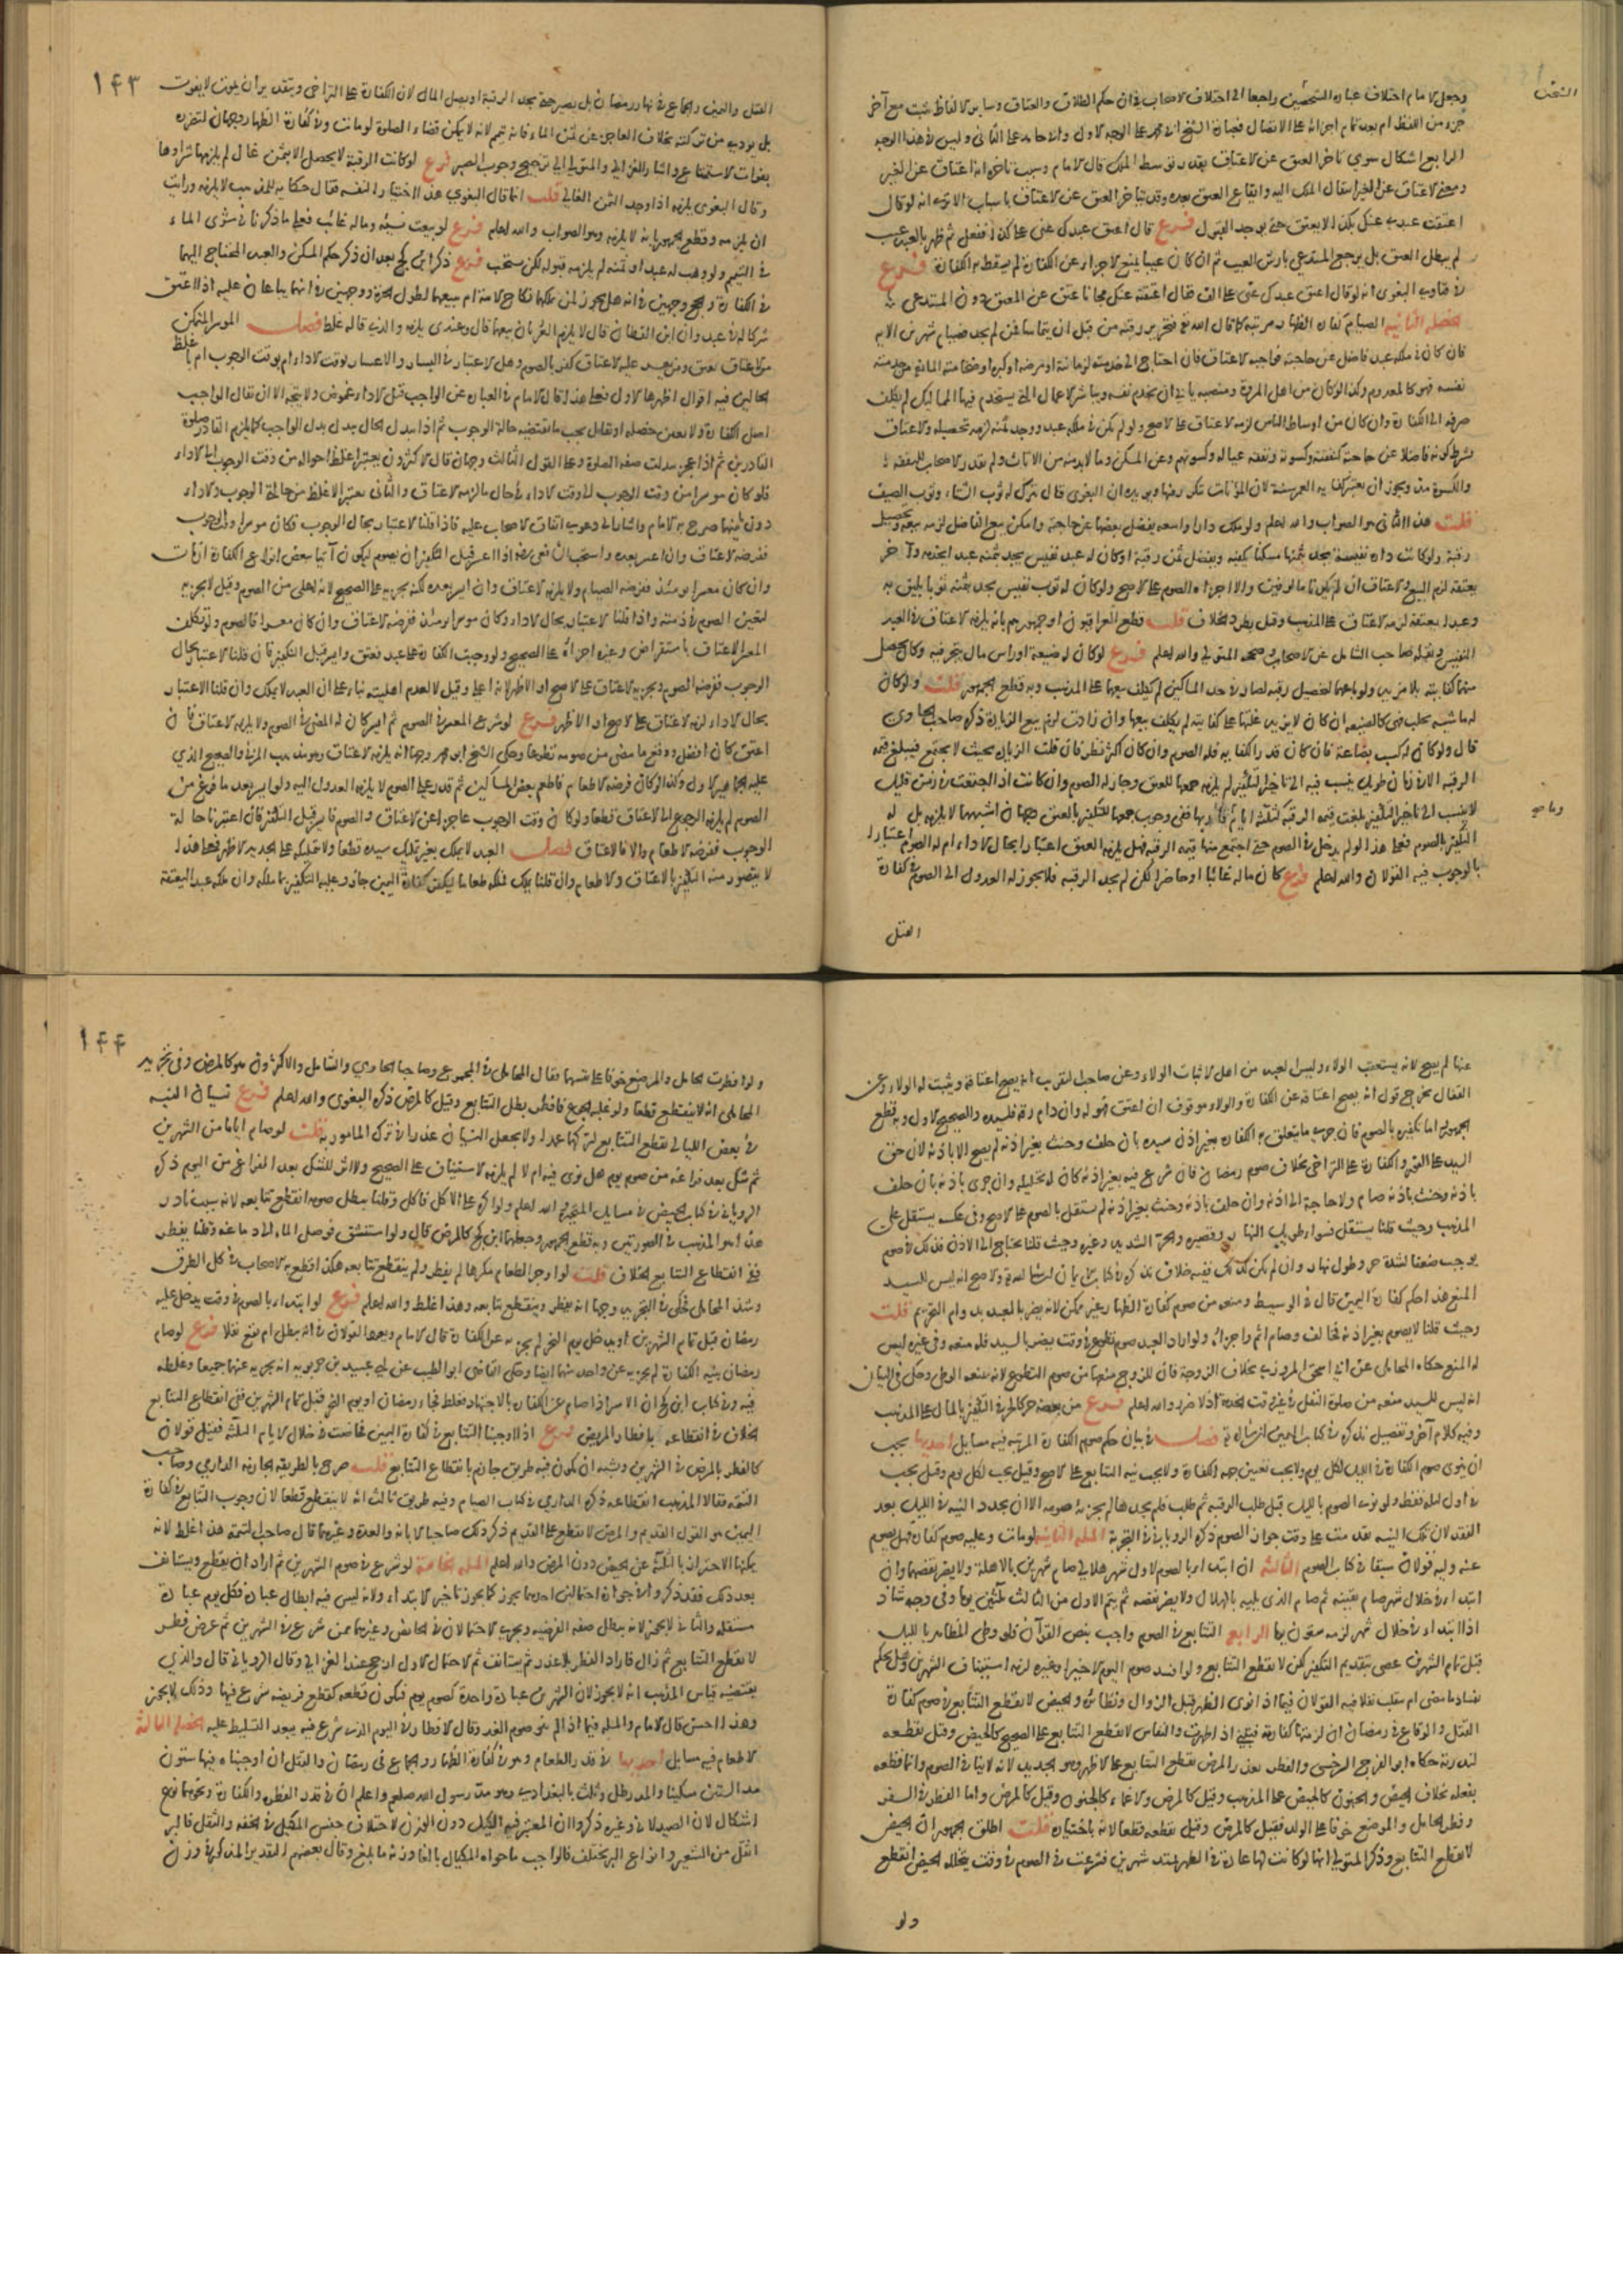 وجعل الامام اختلاف عبارة الشخصين راجعا الى اختلاف الاصحاب في ان حكم الطلاق والعتاق وساير الالفاظ يثبت مع آخر
جزء من اللفظ ام بعد تمام اجزائه على الاتصال فعبارة الشيخ ابي محمد على الوجه الاول والشيخ ابي حامد على الثاني وليس في هذا الوجه
الرابع اشكال سوى تاخر العتق عن الاعتاق بقدر توسط الملك قال الامام وسبب تاخره انه اعتاق عن الغير
ومعنى الاعتاق عن الغير انتقال الملك اليه وايقاع العتق بعده وقد يتاخر العتق عن الاعتاق باسباب الا ترى انه لو قال
اعتقت عبدي عنك بكذا لا يعتق حتى يوجد القبول فرع قال اعتق عبدك عني على كذا ففعل ثم ظهر بالعبد عيب
لم يبطل العتق بل يرجع المستدعي بارش العيب ثم ان كان عيبا يمنع الاجزاء عن الكفارة لم يسقط به الكفارة فرع
في فتاوى البغوي انه لو قال اعتق عبدك عني على الف فقال اعتقته عنك مجانا عتق عن المعتق دون المستدعي
الخصلة الثانية الصيام كفارة الظهار مرتبة كما قال الله تعالى فتحرير رقبة من قبل ان يتماسا فمن لم يجد فصيام شهرين الاية
فان كان في ملكه عبد فاضل عن حاجته فواجبه الاعتاق فان احتاج الى خدمته لزمانة او مرض او كبر او ضخامة المانع من خدمته
نفسه فهو كالمعدوم وكذا لو كان من اهل المروة ومنصبه يابى ان يخدم نفسه ويباشر الاعمال التي يستخدم فيها المماليك لم يكلف
صرفه الى الكفارة وان كان من اوساط الناس لزمه الاعتاق على الاصح ولو لم يكن في ملكه عبد ووجد ثمنه لزمه تحصيله والاعتاق
بشرط كونه فاضلا عن حاجته كنفقته وكسوته ونفقة عياله وكسوتهم وعن المسكن وما لا بد منه من الاثاث ولم يقدر الاصحاب للنفقة
والكسوة مدة ويجوز ان يعتبر كفاية العمر سنة لان المؤنات تتكرر فيها ويؤيده ان البغوي قال يترك له ثوب الشتاء وثوب الصيف
قلت هذا الثاني هو الصواب والله اعلم ولو ملك دارا واسعة يفضل بعضها عن حاجته وامكن بيع الفاضل لزمه بيعه وتحصيل
رقبة ولو كانت دارا نفيسة يجد بثمنها مسكنا يكفيه ويفضل ثمن رقبة او كان له عبد نفيس يجد بثمنه عبدا يخدمه وآخر
يعتقه لزم البيع والاعتاق ان لم يكونا مالوفين والا اجزاه الصوم على الاصح ولو كان له ثوب نفيس يجد بثمنه ثوبا يليق به
وعبدا يعتقه لزمه الاعتاق على المذهب وقيل بطرد الخلاف قلت قطع العراقيون او جمهورهم بانه يلزمه الاعتاق في العبد
النفيس ونقله صاحب الشامل عن الاصحاب وصححه المتولي والله اعلم فرع لو كان له ضيعة او راس مال يتجر فيه وكان يحصل
منهما كفايته بلا مزيد ولو باعهما لتحصيل رقبة لصار في حد المساكين لم يكلف بيعهما على المذهب وبه قطع الجمهور قلت ولو كان
له ماشية تحلب فهي كالضيعة ان كان لا يزيد غلتها على كفايته لم يكلف بيعها وان زادت لزم بيع الزيادة ذكره صاحب الحاوي
قال ولو كان له كسب بضاعة فان كان قدر الكفاية فله الصوم وان كان اكثر نظر فان قلت الزيادة بحيث لا يجتمع فيبلغ قيمة
الرقبة الا في زمان طويل ينسب فيه الى تاخير التكفير لم يلزمه جمعها للعتق وجاز له الصوم وان كانت اذا اجتمعت في زمن قليل
لا ينسب الى تاخير التكفير بلغت قيمة الرقبة كثلاثة ايام وما قاربها ففي وجوب جمعها للتكفير بالعتق وجهان اشبههما لا يلزمه بل له
التكفير بالصوم فعلى هذا لو لم يدخل في الصوم حتى اجتمع منها قيمة الرقبة فهل يلزمه العتق اعتبارا بحال الاداء ام له الصوم اعتبارا
بالوجوب فيه القولان والله اعلم فرع كان ماله غائبا او حاضرا لكن لم يجد الرقبة فلا يجوز له العدول الى الصوم في كفارة
القتل
١٤٣
القتل واليمين والجماع في نهار رمضان بل يصبر حتى يجد الرقبة او يصل المال لان الكفارة على التراخي وبتقدير ان يموت لا يفوت
بل يؤدى من تركته بخلاف العاجز عن ثمن الماء فانه يتيمم لانه لا يمكن قضاء الصلوة لو مات وفي كفارة الظهار وجهان لتضرره
بفوات الاستمتاع واشار الغزالي والمتولي الى ترجيح وجوب الصبر فرع لو كانت الرقبة لا يحصل الا بثمن غال لم يلزمه شراؤها
وقال البغوي يلزمه اذا وجد الثمن الغالي قلت انما قال البغوي هذا اختيارا لنفسه فقال حكاية للمذهب لا يلزمه ورايت
ان يلزمه وقطع الجمهور بانه لا يلزمه وهو الصواب والله اعلم فرع لو بيعت نسيئة وماله غائب فعلى ما ذكرنا في شرى الماء
في التيمم ولو وهب له عبد او ثمنه لم يلزمه قبوله لكن يستحب فرع ذكر ابن كج بعد ان ذكر حكم المسكن والعبد المحتاج اليهما
في الكفارة والحج وجهين في انه هل يجوز لمن ملكهما نكاح الامة ام بيعهما لطول الحرة ووجهين في انهما يباعان عليه اذا اعتق
شركا له في عبد وان ابن القطان قال لا يلزم العريان بيعهما قال وعندي يلزمه والذي قاله غلط فصل الموسر المتمكن
من الاعتاق يعتق ومن تعسر عليه الاعتاق كفر بالصوم وهل الاعتبار في اليسار والاعسار بوقت الاداء ام بوقت الوجوب ام باغلظ
الحالين فيه اقوال اظهرها الاول فعلى هذا قال الامام في العبارة عن الواجب قبل الاداء غموض ولا يتجه الا ان يقال الواجب
اصل الكفارة ولا يعين خصلة او يقال يجب ما يقتضيه حالة الوجوب ثم اذا تبدل الحال يبدل بدل الواجب كما يلزم القادر صلوة
القادرين ثم اذا عجز تبدلت صفة الصلوة وعلى القول الثالث وجهان قال الاكثرون يعتبر اغلظ احواله من وقت الوجوب الى الاداء
فلو كان موسرا من وقت الوجوب الى وقت الاداء في حال ما لزمه الاعتاق والثاني يعتبر الاغلظ من حالتي الوجوب والاداء
دون ما بينهما صرح به الامام واشار الى دعوى اتفاق الاصحاب عليه فاذا قلنا الاعتبار بحال الوجوب فكان موسرا وقت الوجوب
ففرضه الاعتاق وان اعسر بعده واستحب الشافعي رضي الله عنه اذا اعسر قبل التكفير ان يصوم ليكون آتيا ببعض انواع الكفارة ان مات
وان كان معسرا يومئذ ففرضه الصيام ولا يلزمه الاعتاق وان ايسر بعده لكن يجزيه على الصحيح لانه اعلى من الصوم وقيل لا يجزيه
لتعين الصوم في ذمته واذا قلنا الاعتبار بحال الاداء وكان موسرا يومئذ ففرضه الاعتاق وان كان معسرا فالصوم ولو تكلف
المعسر الاعتاق باستقراض وغيره اجزأه على الصحيح ولو وجبت الكفارة على عبد فعتق وايسر قبل التكفير فان قلنا الاعتبار بحال
الوجوب ففرضه الصوم ويجزيه الاعتاق على الاصح او الاظهر لانه اعلى وقيل لا لعدم اهليته بناء على ان العبد لا يملك وان قلنا الاعتبار
بحال الاداء لزمه الاعتاق على الاصح او الاظهر فرع لو شرع المعسر في الصوم ثم ايسر كان له المضي في الصوم ولا يلزمه الاعتاق فان
اعتق كان افضل ووقع ما مضى من صومه تطوعا وحكى الشيخ ابو محمد وجها انه يلزمه الاعتاق وهو مذهب المزني والصحيح الذي
عليه الجماهير الاول وكذا لو كان فرضه الاطعام فاطعم بعض المساكين ثم قدر على الصوم لا يلزمه العدول اليه ولو ايسر بعد ما فرغ من
الصوم لم يلزمه الرجوع الى الاعتاق قطعا ولو كان وقت الوجوب عاجزا عن الاعتاق والصوم فايسر قبل التكفير فان اعتبرنا حالة
الوجوب ففرضه الاطعام والا فالاعتاق فصل العبد لا يملك بغير تمليك سيده قطعا ولا بتمليكه على الجديد الاظهر فعلى هذا
لا يتصور منه التكفير بالاعتاق والاطعام وان قلنا يملك فملكه طعاما ليكفر كفارة اليمين جاز وعليه التكفير بما ملكه وان ملكه عبدا ليعتقه
عنها لم يصح لانه يستعقب الولاء وليس العبد من اهل لاثبات الولاء وعن صاحب التقريب انه يصح اعتاقه ويثبت له الولاء وعن
القفال تخريج قول انه يصح اعتاقه عن الكفارة والولاء موقوف ان اعتق فهو له وان دام رقه فلسيده والصحيح الاول وبه قطع
الجمهور اما تكفيره بالصوم فان جرى ما يتعلق به الكفارة بغير اذن سيده بان حلف وحنث بغير اذنه لم يصم الا باذنه لان حق
السيد على الفور والكفارة على التراخي بخلاف صوم رمضان فان شرع فيه بغير اذنه كان له تحليله وان جرى باذنه بان حلف
باذنه وحنث باذنه صام ولا حاجة الى اذنه وان حلف باذنه وحنث بغير اذنه لم يستقل بالصوم على الاصح وفي عكسه يستقل على
المذهب وحيث قلنا يستقل فسواء طويل النهار وقصيره والحر الشديد وغيره وحيث قلنا يحتاج الى الاذن فذلك في صوم
يوجب ضعفا لشدة حر وطول نهار وان لم يكن كذلك ففيه خلاف نذكره في كتاب الايمان ان شاء الله والاصح انه ليس للسيد
المنع هذا حكم كفارة اليمين قال في الوسيط ومنعه من صوم كفارة الظهار غير ممكن لانه يضر بالعبد بدوام التحريم قلت
وحيث قلنا لا يصوم بغير اذنه فخالف وصام اثم واجزأه ولو اراد العبد صوم تطوع في وقت يضر بالسيد فله منعه وفي غيره ليس
له المنع حكاه المحاملي عن ابي اسحق المروزي بخلاف الزوجة فان للزوج منعها من صوم التطوع لانه يمنعه الوطئ وحكى في البيان
انه ليس للسيد منعه من صلوة النفل في غير وقت الخدمة اذ لا ضرر والله اعلم فرع من بعضه حر كالحر في التكفير بالمال على المذهب
وفيه كلام آخر وتفصيل نذكره في كتاب الايمان ان شاء الله تعالى فصل في بيان حكم صوم الكفارة المرتبة فيه مسايل احديها يجب
ان ينوي صوم الكفارة في الليل لكل يوم ولا يجب تعيين جهة الكفارة ولا يجب نية التتابع على الاصح وقيل يجب لكل يوم وقيل يجب
في اول ليلة فقط ولو نوى الصوم بالليل قبل طلب الرقبة ثم طلب فلم يجدها لم يجزئه صومه الا ان يجدد النية في الليل بعد
الفقد لان تلك النية تقدمت على وقت جواز الصوم ذكره الروياني في التجربة المسألة الثانية لو مات وعليه صوم كفارة فهل يصوم
عنه وليه قولان سبقا في كتاب الصوم الثالثة ان ابتدا بالصوم لاول شهر هلالي صام شهرين بالاهلة ولا يضر نقصهما وان
ابتدا في خلال شهر صام بقيته ثم صام الذي يليه بالهلال ولا يضر نقصه ثم يتم الاول من الثالث ثلثين يوما وفي وجه شاذ
اذا ابتداء في خلال شهر لزمه ستون يوما الرابع التتابع في الصوم واجب بنص القرآن فلو وطئ المظاهر بالليل
قبل تمام الشهرين عصى بتقديم التكفير لكن لا يقطع التتابع ولو افسد صوم اليوم الاخير او غيره لزمه استيناف الشهرين وهل يحكم
بفساد ما مضى ام ينقلب نفلا فيه القولان فيما اذا نوى الظهر قبل الزوال ونظائره والحيض لا يقطع التتابع في صوم كفارة
القتل والوقاع في رمضان ان لزمتها كفارة فتبني اذا طهرت والنفاس لا يقطع التتابع على الصحيح كالحيض وقيل يقطعه
لندرته حكاه ابو الفرج السرخسي والفطر بعذر المرض يقطع التتابع على الاظهر وهو الجديد لانه لا ينافي الصوم وانما قطعه
بفعله بخلاف الحيض والجنون كالحيض على المذهب وقيل كالمرض والاغماء كالجنون وقيل كالمرض واما الفطر في السفر
وفطر الحامل والمرضع خوفا على الولد فقيل كالمرض وقيل يقطعه قطعا لانه باختياره قلت اطلق الجمهور ان الحيض
لا يقطع التتابع وذكر المتولي انها لو كانت لها عادة في الطهر تمتد شهرين فشرعت في الصوم في وقت يتخلله الحيض انقطع
ولو
١٤٤
ولو افطرت الحامل والمرضع خوفا على نفسهما فقال المحاملي في المجموع وصاحبا الحاوي والشامل والاكثرون هو كالمرض وفي تجريد
المحاملي انه لا ينقطع قطعا ولو غلبه الجوع فافطر بطل التتابع وقيل كالمرض ذكره البغوي والله اعلم فرع نسيان النية
في بعض الليالي يقطع التتابع كتركها عمدا ولا يجعل النسيان عذرا في ترك المامور به قلت لو صام اياما من الشهرين
ثم شك بعد فراغه من صوم يوم هل نوى فيه ام لا لم يلزمه الاستيناف على الصحيح ولا اثر للشك بعد الفراغ من اليوم ذكره
الروياني في كتاب الحيض في مسايل المتحيرة والله اعلم ولو اكره على الاكل فاكل وقلنا يبطل صومه انقطع تتابعه لانه سبب نادر
هذا هو المذهب في الصورتين وبه قطع الجمهور وجعلهما ابن كج كالمرض قال ولو استنشق فوصل الماء الى دماغه وقلنا يفطر
ففي انقطاع التتابع الخلاف قلت لو اوجر الطعام مكرها لم يفطر ولم ينقطع تتابعه هكذا قطع به الاصحاب في كل الطرق
وشذ المحاملي فحكى في التجريد وجها انه يفطر وينقطع تتابعه وهذا غلط والله اعلم فرع لو ابتدا بالصوم في وقت يدخل عليه
رمضان قبل تمام الشهرين او يدخل يوم النحر لم يجزئه عن الكفارة قال الامام ويعود القولان في انه يبطل ام يقع نفلا فرع لو صام
رمضان بنية الكفارة لم يجزيه عن واحد منهما ايضا وحكى القاضي ابو الطيب عن ابي عبيد بن حربويه انه يجزيه عنهما جميعا وغلطه
فيه وفي كتاب ابن كج ان الاسير اذا صام عن الكفارة بالاجتهاد فغلط فجاء رمضان او يوم النحر قبل تمام الشهرين ففي انقطاع التتابع
الخلاف في انقطاعه بافطار المريض فرع اذا اوجبنا التتابع في كفارة اليمين فحاضت في خلال الايام الثلثة فقيل قولان
كالفطر بالمرض في الشهرين ويشبه ان يكون فيه طريق جازم بانقطاع التتابع قلت صرح بالطريقة الجازمة الدارمي وصاحب
التتمة فقالا المذهب انقطاعه ذكره الدارمي في كتاب الصيام وفيه طريق ثالث انه لا ينقطع قطعا لان وجوب التتابع في كفارة
اليمين هو القول القديم والمرض لا يقطع على القديم ذكر ذلك صاحبا الابانة والعدة وغيرهما قال صاحب التتمة هذا غلط لانه
يمكنها الاحتراز بالثلثة عن الحيض دون المرض والله اعلم المسألة الخامسة لو شرع في صوم الشهرين ثم اراد ان يقطع ويستانف
بعد ذلك فقد ذكروا في جوازه احتمالين احدهما يجوز كما يجوز تاخير الابتداء ولانه ليس فيه ابطال عبادة فكل يوم عبادة
مستقلة والثاني لا يجوز لانه يبطل صفة الفرضية ويجري الاحتمالان في الحائض وغيرها ممن شرع في الشهرين ثم عرض فطر
لا يقطع التتابع ثم زال فاراد الفطر بلا عذر ثم يستانف ثم الاحتمال الاول ارجح عند الغزالي وقال الروياني قال والذي
يقتضيه قياس المذهب انه لا يجوز لان الشهرين عبادة واحدة كصوم يوم فيكون قطعه كقطع فريضة شرع فيها وذلك لا يجوز
وهذا احسن قال الامام والمسألة فيما اذا لم ينو صوم الغد وقال لا افطار في اليوم الذي شرع فيه يبعد التسليط عليه الخصلة الثالثة
الاطعام فيه مسايل احديها في قدر الطعام وهو في كفارة الظهار والجماع في رمضان والقتل ان اوجبناه فيها ستون
مدا لستين مسكينا والمد رطل وثلث بالبغدادي وهو مد رسول الله صلعم واعلم ان في قدر الفطرة والكفارة ونحوهما نوع
اشكال لان الصيدلاني وغيره ذكروا ان المعتبر فيه الكيل دون الوزن لاختلاف جنس المكيل في الخفة والثقل فالبر
اثقل من الشعير وانواع البر يختلف فالواجب ما حواه المكيال بالغا وزنه ما بلغ وقال بعضهم التقدير المذكور في وزن